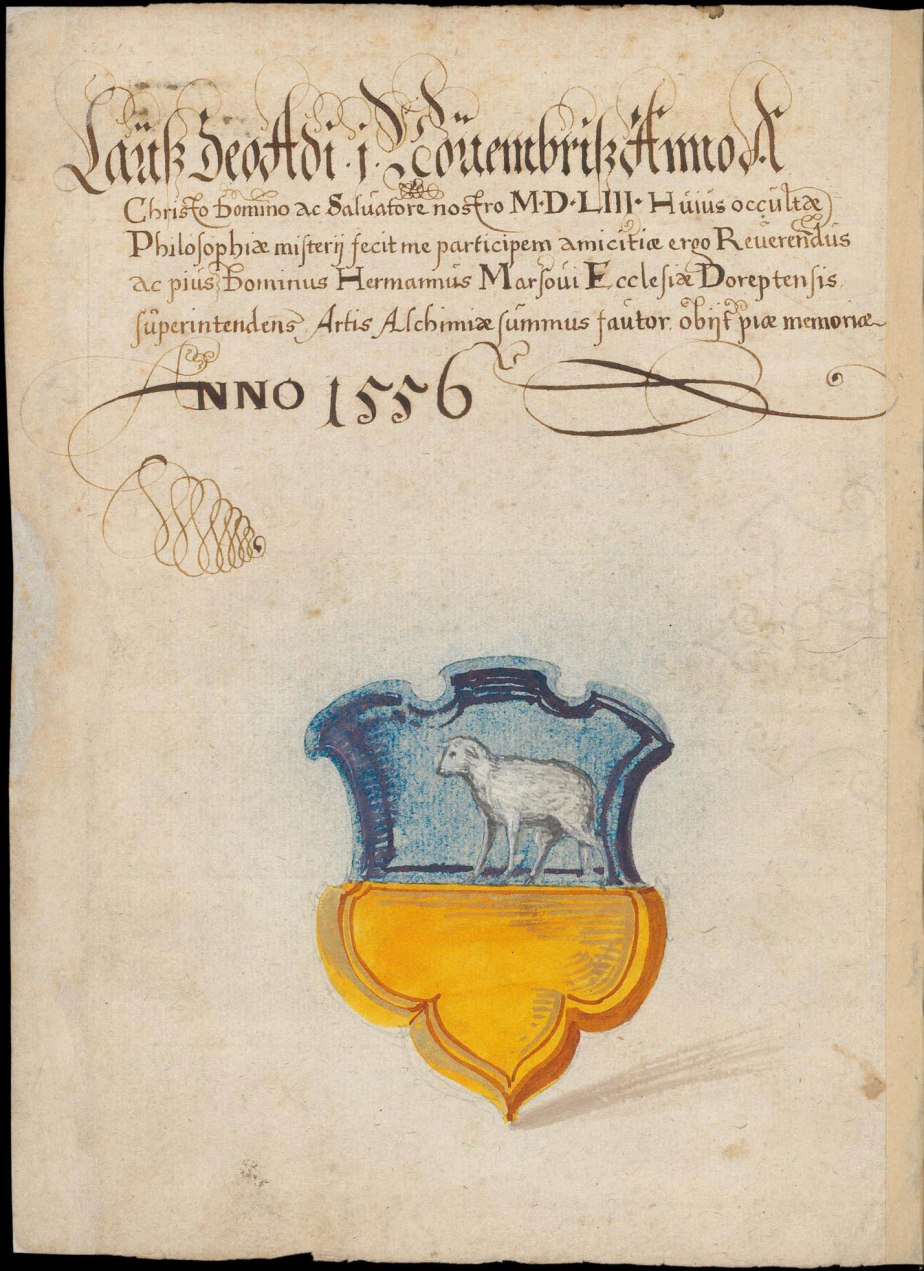 Laüß Deo Adi · j · Noüembriß Anno A
Christo Domino ac Salvatore nostro M·D·LIII· Hüius occültæ
Philosophiæ misterij fecit me participem amicitiæ ergo Reüerendüs
ac pius Dominus Hermannus Marsoüi Ecclesiæ Doreptensis
süperintendens Artis Alchimiæ summus fautor obijt piæ memoriæ
ANNO 1556